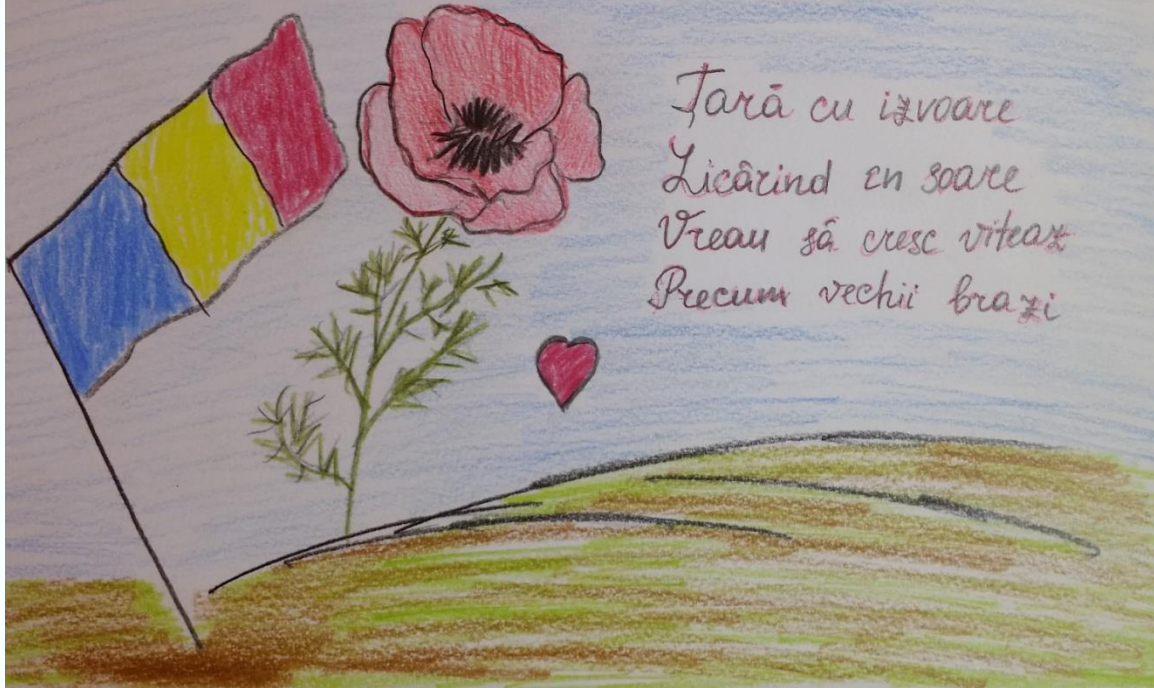 Țară cu izvoare
Licărind în soare
Vreau să cresc viteaz
Precum vechii brazi